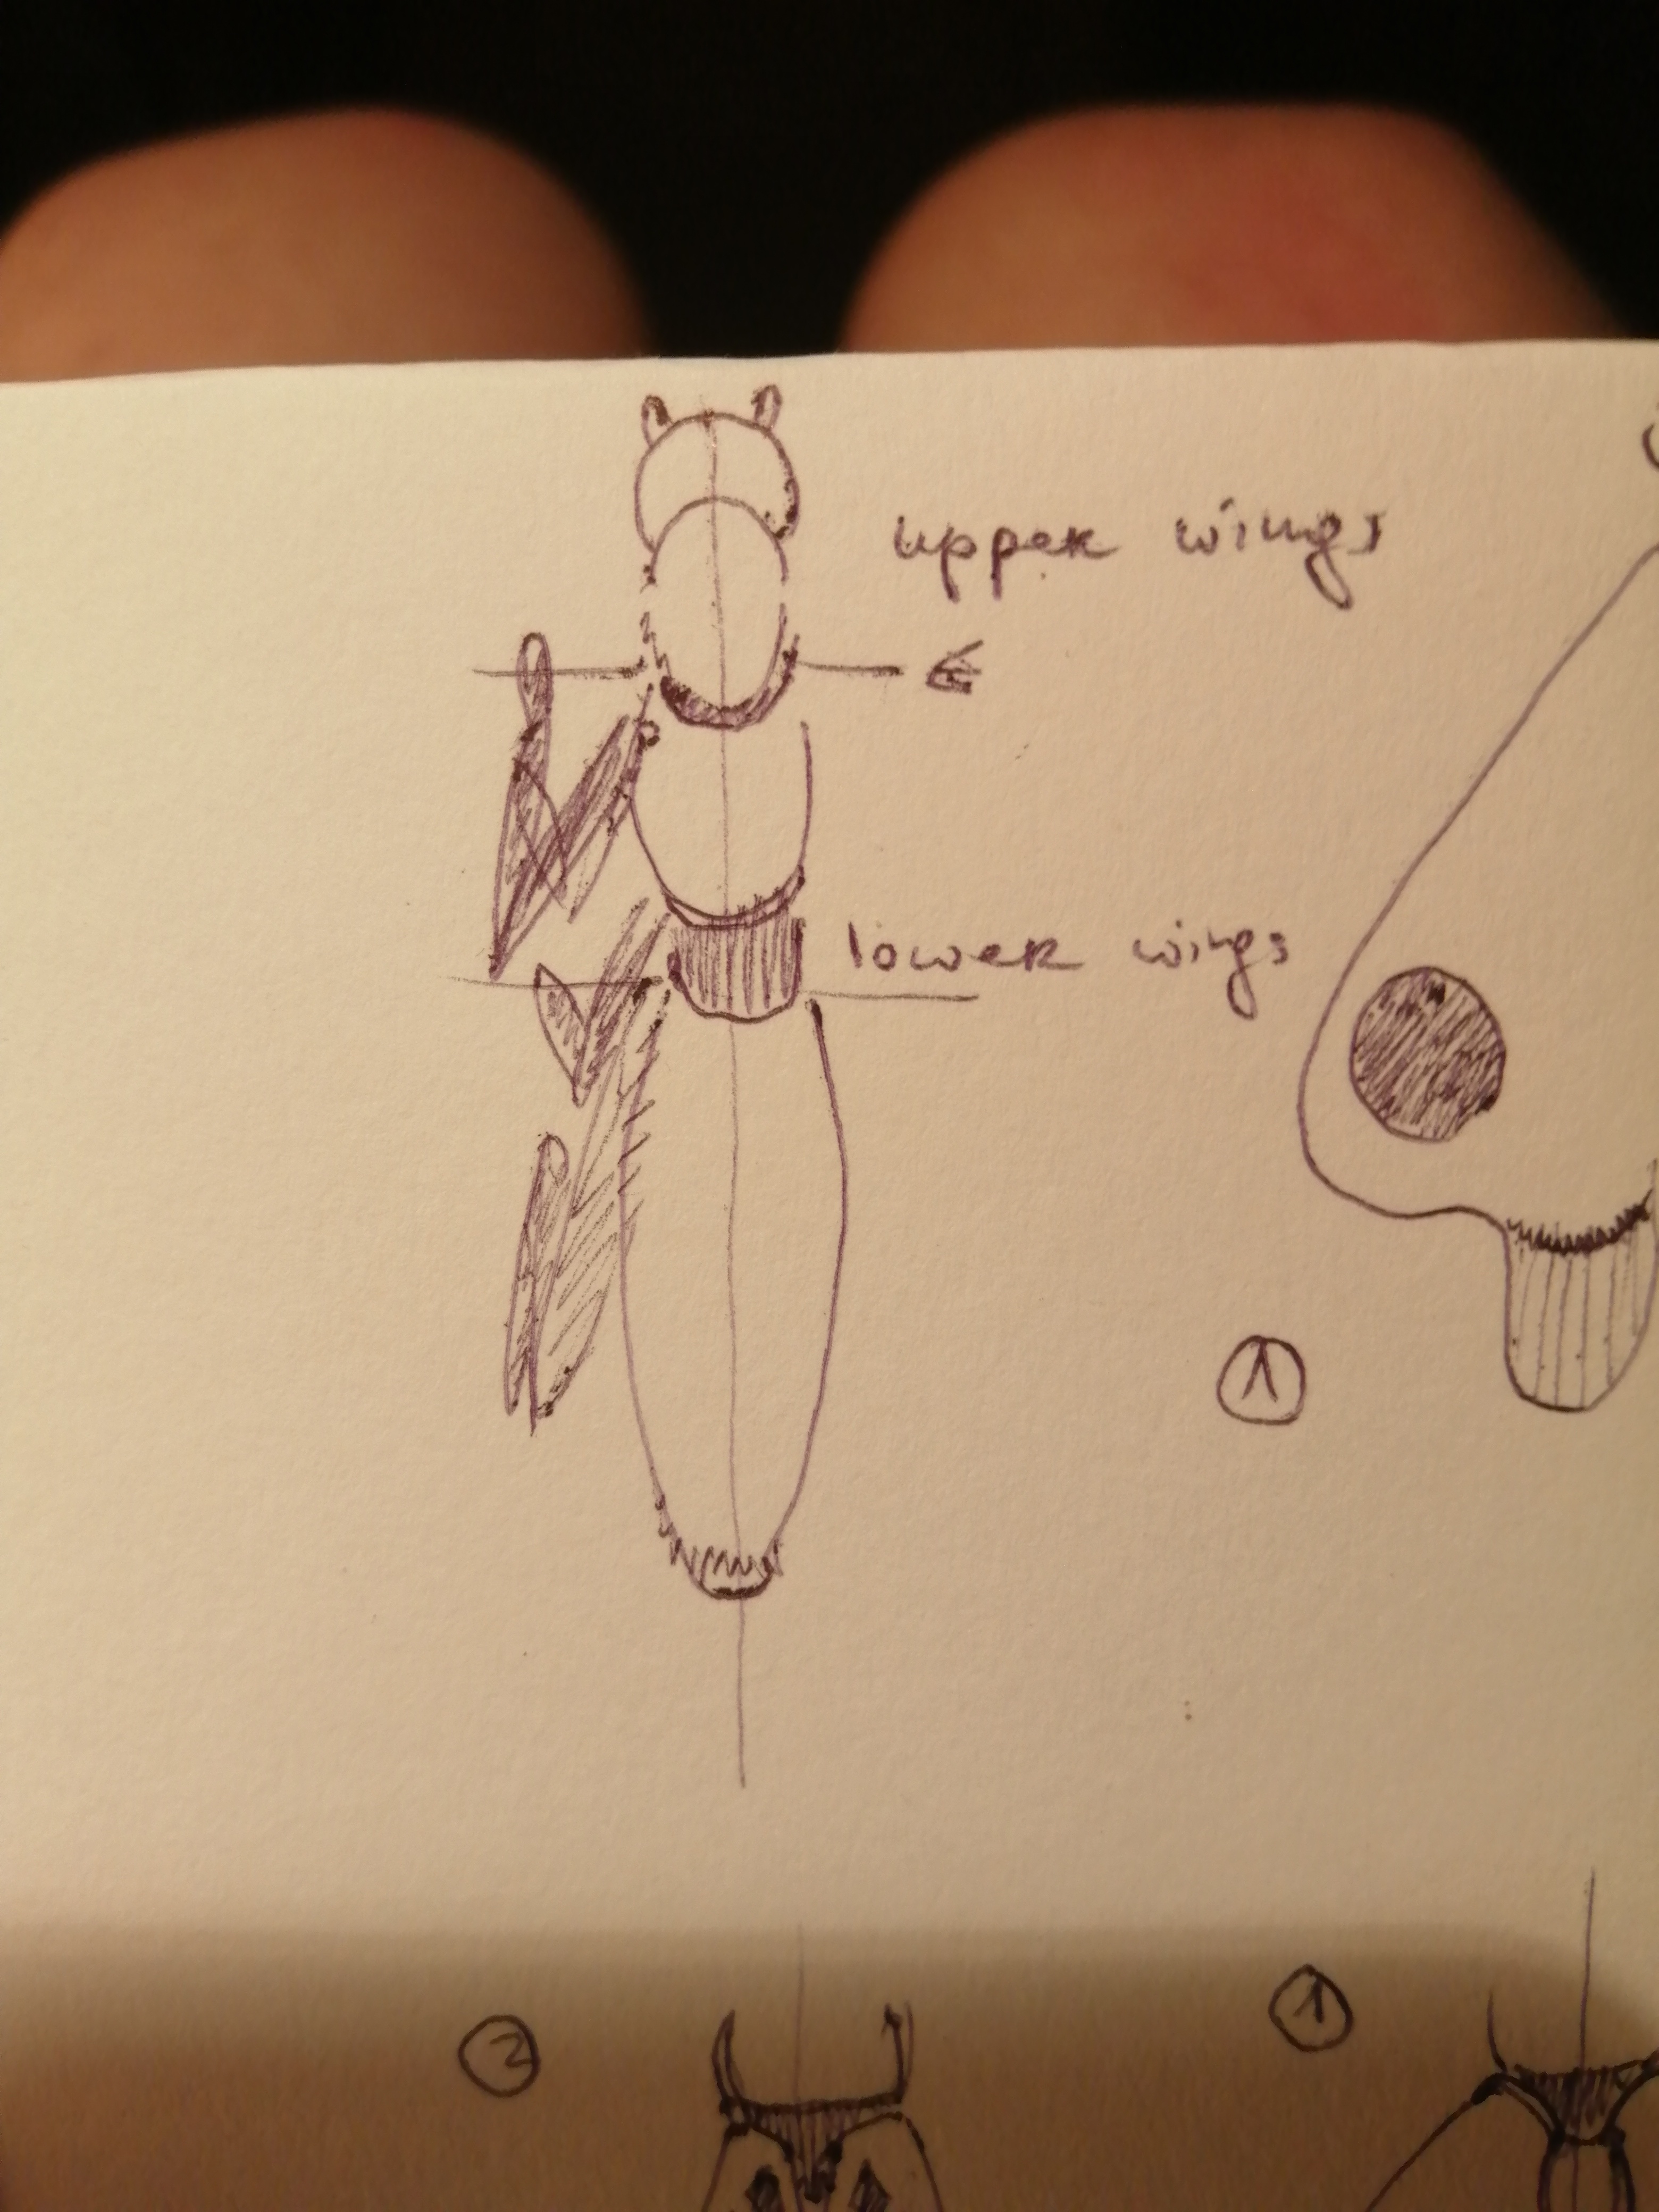 upper wings
lower wings
1
2
1